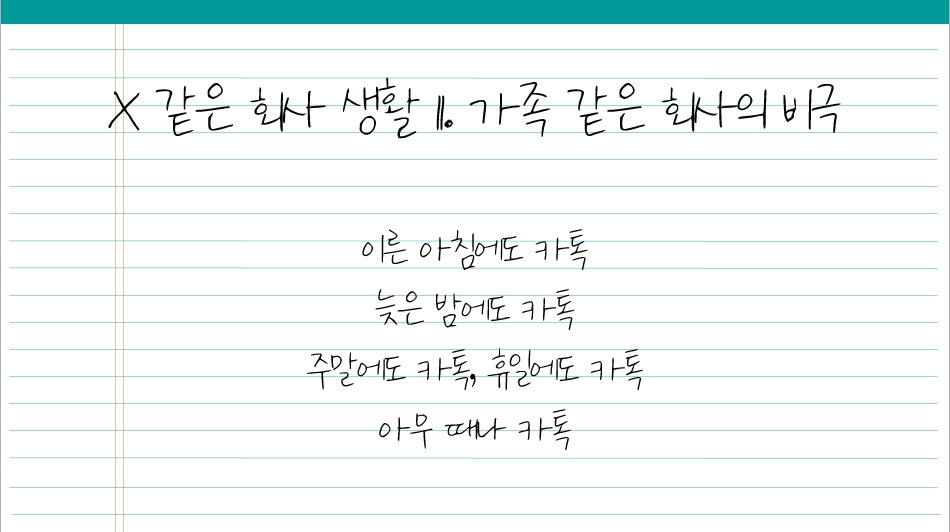 X 같은 회사 생활 11. 가족 같은 회사의 비극
이른 아침에도 카톡
늦은 밤에도 카톡
주말에도 카톡, 휴일에도 카톡
아무 때나 카톡